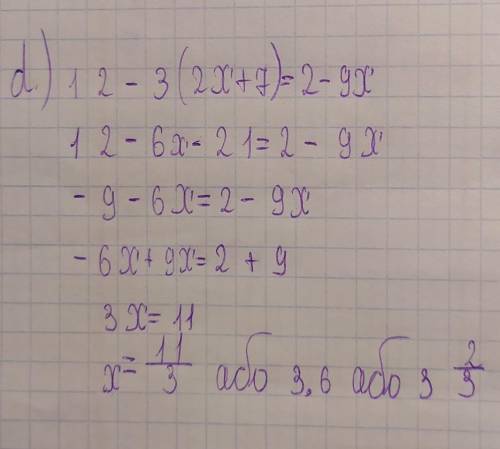 d.) 12 - 3(2x+7)=2-9x
12 - 6x - 21=2 - 9x
- 9 - 6x=2 - 9x
- 6x+9x=2 + 9
3x= 11
x= 11/3 або 3,6 або 3 2/3